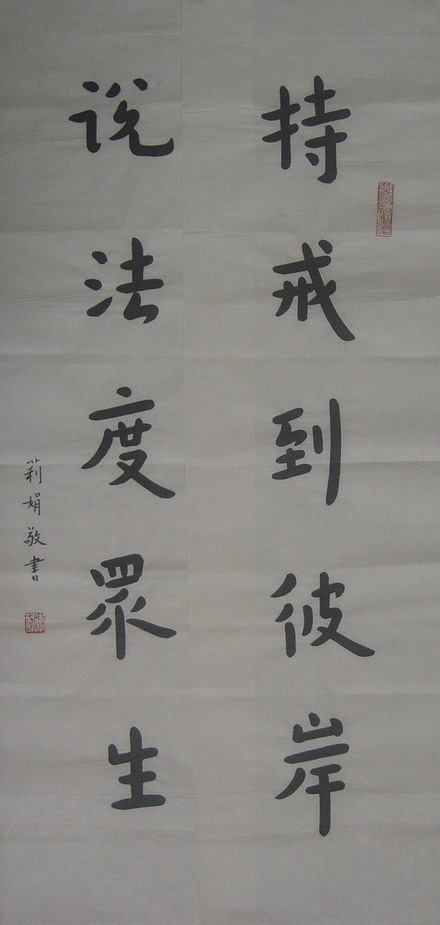 持戒到彼岸
说法度眾生
莉娟敬書